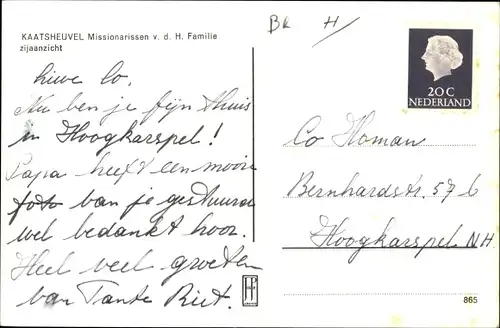 KAATSHEUVEL Missionarissen v. d. H. Familie
zijaanzicht
BK H/
20 C
NEDERLAND
Lieve Co.
Nu ben je fijn thuis
in Hoogkarspel!
Papa heeft een mooie
foto van je gestuurd
wel bedankt hoor.
Heel veel groeten
van Tante Riet.
Co Homan
Bernhardstr. 57 b
Hoogkarspel N.H.
865